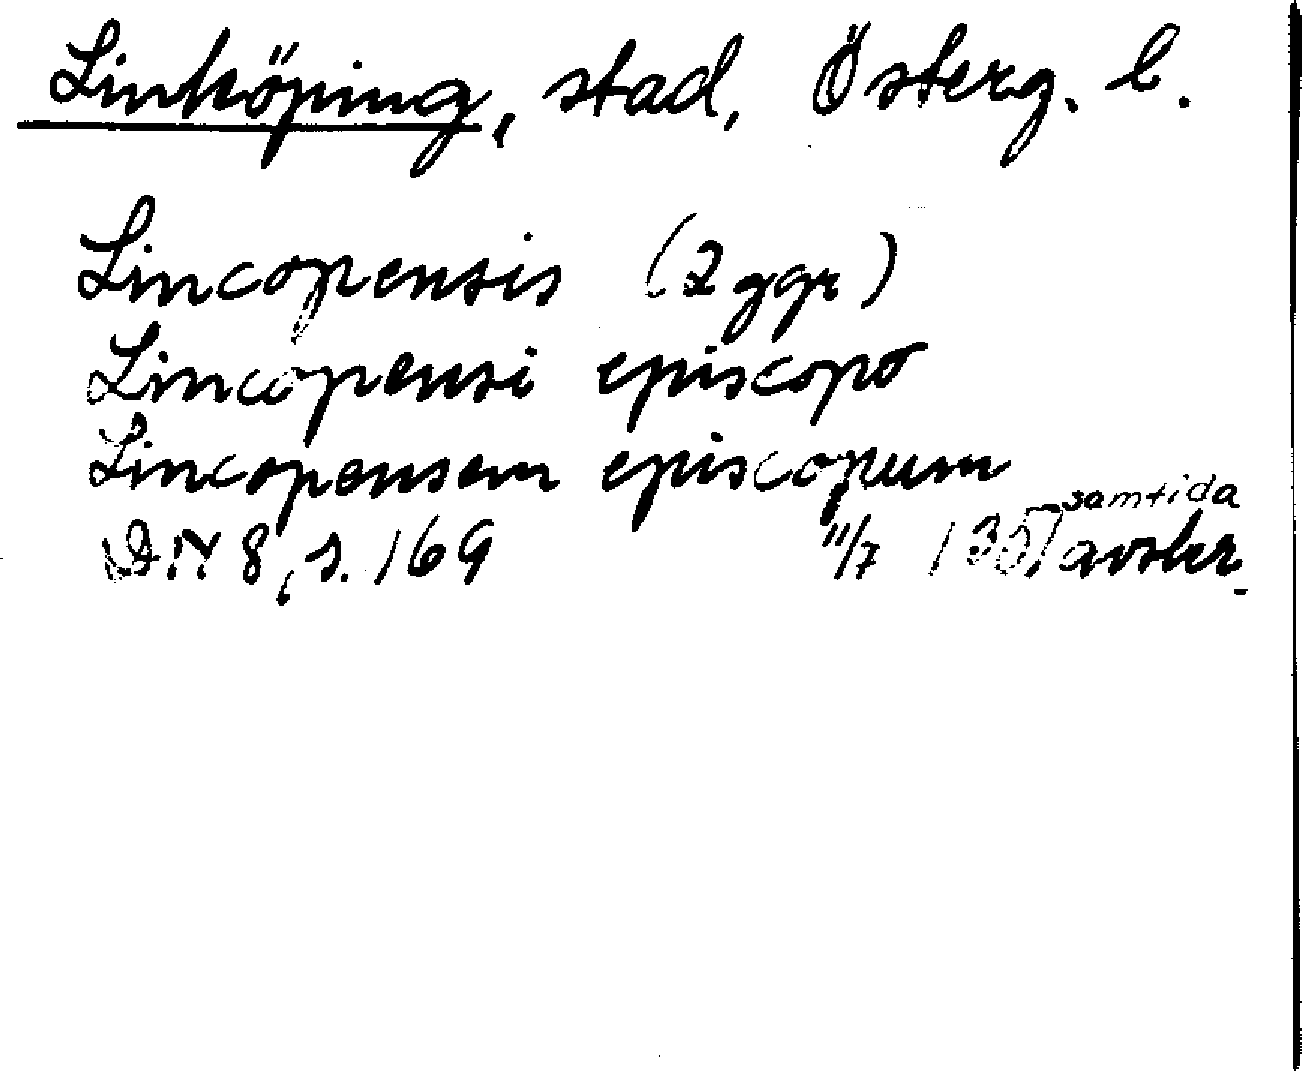 Linköping, stad, Österg. l.
Lincopensis (2 ggr)
Lincopensi episcopo
Lincopensem episcopum
samtida
DN 8, s. 169 11/7 1357 avskr.